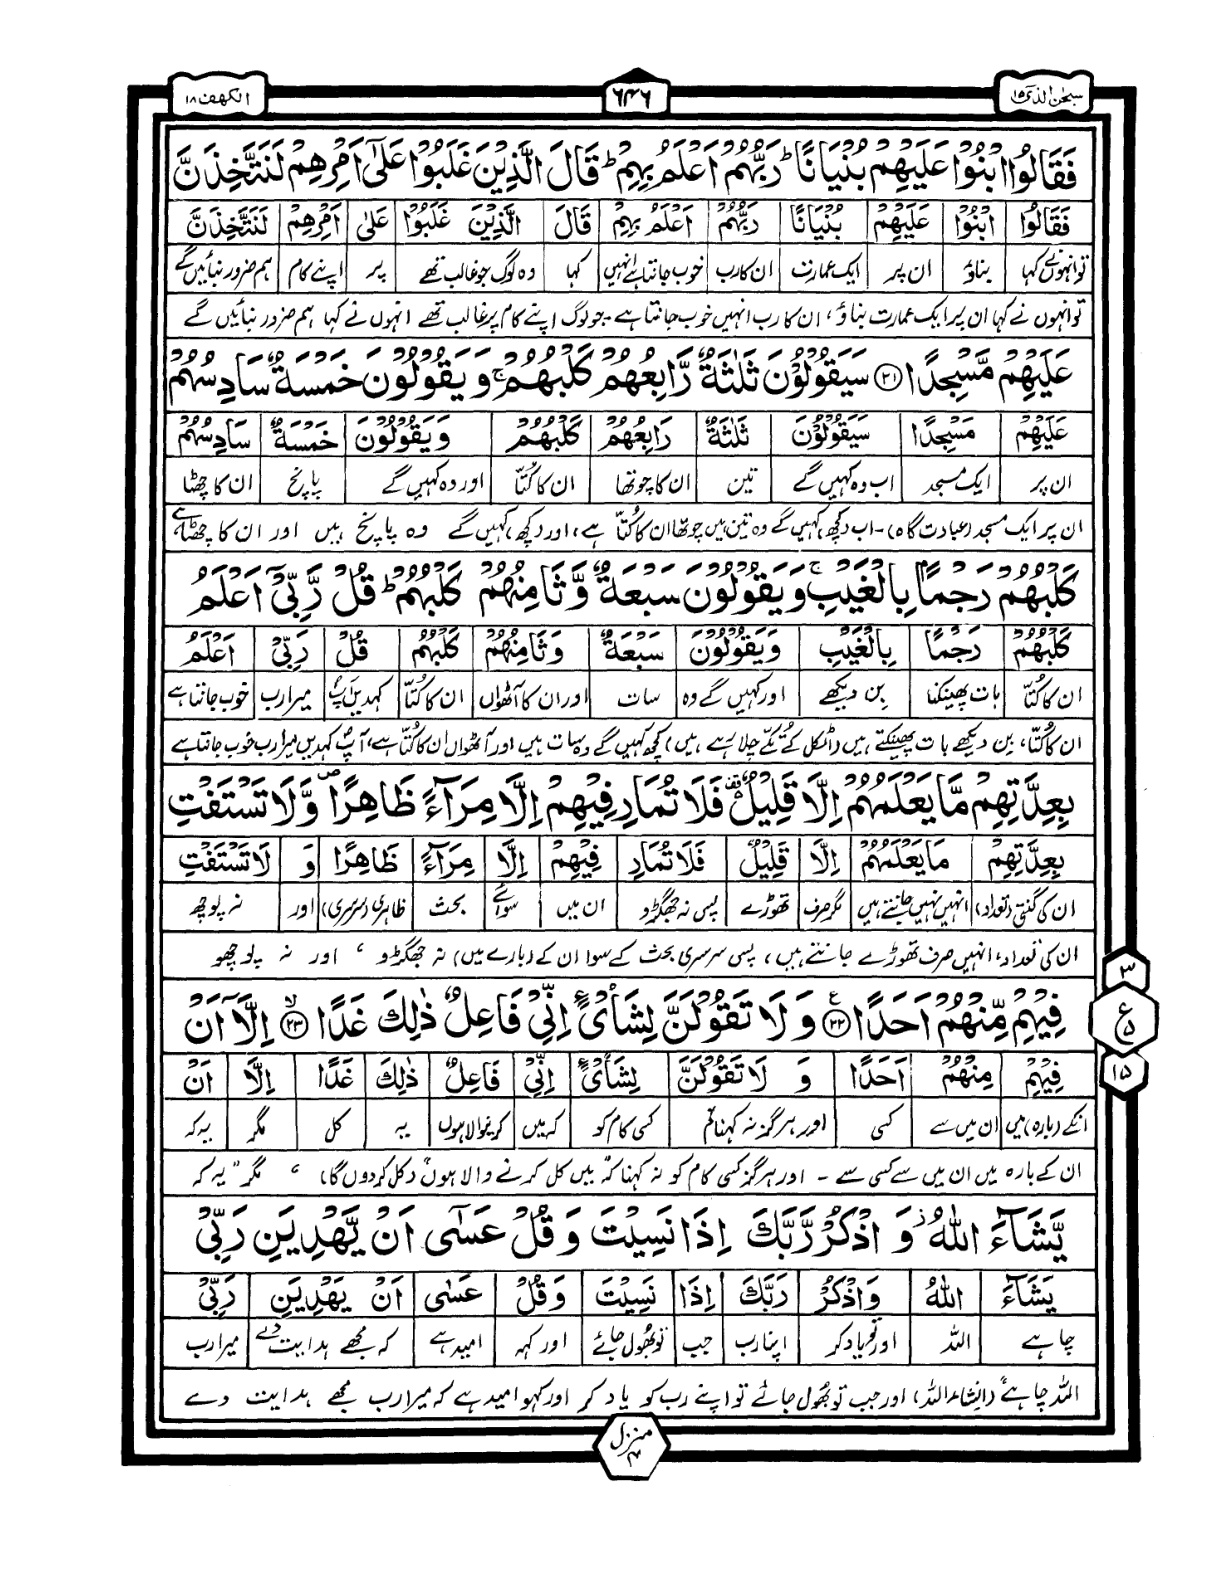 سبحن الذی ۱۵
۶۴۶
الکهف ۱۸
فَقَالُوا ابْنُوْا عَلَيْهِمْ بُنْيَانًا ؕ رَبُّهُمْ اَعْلَمُ بِهِمْ ؕ قَالَ الَّذِيْنَ غَلَبُوْا عَلٰٓى اَمْرِهِمْ لَنَتَّخِذَنَّ
فَقَالُوا ابْنُوْا عَلَيْهِمْ بُنْيَانًا رَبُّهُمْ اَعْلَمُ بِهِمْ قَالَ الَّذِيْنَ غَلَبُوْا عَلٰى اَمْرِهِمْ لَنَتَّخِذَنَّ
تو انہوں نے کہا بناؤ ان پر ایک عمارت ان کا رب خوب جانتا ہے انہیں کہا وہ لوگ جو غالب تھے پر اپنے کام ہم ضرور بنائیں گے
تو انہوں نے کہا ان پر ایک عمارت بناؤ، ان کا رب انہیں خوب جانتا ہے۔ جو لوگ اپنے کام پر غالب تھے انہوں نے کہا ہم ضرور بنائیں گے
عَلَيْهِمْ مَّسْجِدًا ۲۱ سَيَقُوْلُوْنَ ثَلٰثَةٌ رَّابِعُهُمْ كَلْبُهُمْ ۚ وَيَقُوْلُوْنَ خَمْسَةٌ سَادِسُهُمْ
عَلَيْهِمْ مَسْجِدًا سَيَقُوْلُوْنَ ثَلٰثَةٌ رَابِعُهُمْ كَلْبُهُمْ وَيَقُوْلُوْنَ خَمْسَةٌ سَادِسُهُمْ
ان پر ایک مسجد اب وہ کہیں گے تین ان کا چوتھا ان کا کُتّا اور وہ کہیں گے پانچ ان کا چھٹا
ان پر ایک مسجد (عبادت گاہ)۔ اب (کچھ) کہیں گے وہ تین ہیں چوتھا ان کا کُتّا ہے، اور (کچھ) کہیں گے وہ پانچ ہیں اور ان کا چھٹا ہے
كَلْبُهُمْ رَجْمًۢا بِالْغَيْبِ ۚ وَيَقُوْلُوْنَ سَبْعَةٌ وَّثَامِنُهُمْ كَلْبُهُمْ ؕ قُلْ رَّبِّيْٓ اَعْلَمُ
كَلْبُهُمْ رَجْمًا بِالْغَيْبِ وَيَقُوْلُوْنَ سَبْعَةٌ وَثَامِنُهُمْ كَلْبُهُمْ قُلْ رَبِّيْ اَعْلَمُ
ان کا کُتّا بات پھینکنا بن دیکھے اور کہیں گے وہ سات اور ان کا آٹھواں ان کا کُتّا کہدیں آپ میرا رب خوب جانتا ہے
ان کا کُتّا، بن دیکھے بات پھینکتے ہیں (اٹکل کے تُکّے چلا رہے ہیں) کچھ کہیں گے وہ سات ہیں اور آٹھواں ان کا کُتّا ہے، آپ کہدیں میرا رب خوب جانتا ہے
بِعِدَّتِهِمْ مَّا يَعْلَمُهُمْ اِلَّا قَلِيْلٌ فَلَا تُمَارِ فِيْهِمْ اِلَّا مِرَآءً ظَاهِرًا ۪ وَّلَا تَسْتَفْتِ
بِعِدَّتِهِمْ مَا يَعْلَمُهُمْ اِلَّا قَلِيْلٌ فَلَا تُمَارِ فِيْهِمْ اِلَّا مِرَآءً ظَاهِرًا وَ لَا تَسْتَفْتِ
ان کی گنتی (تعداد) انہیں نہیں جانتے ہیں مگر صرف تھوڑے پس نہ جھگڑو ان میں سوائے بحث ظاہری (سرسری) اور نہ پوچھ
ان کی تعداد، انہیں صرف تھوڑے جانتے ہیں، پس سرسری بحث کے سوا ان کے (بارے میں) نہ جھگڑو، اور نہ پوچھو
فِيْهِمْ مِّنْهُمْ اَحَدًا ۲۲ وَلَا تَقُوْلَنَّ لِشَا۟ىْءٍ اِنِّيْ فَاعِلٌ ذٰلِكَ غَدًا ۲۳ اِلَّآ اَنْ
فِيْهِمْ مِنْهُمْ اَحَدًا وَ لَا تَقُوْلَنَّ لِشَا۟ىْءٍ اِنِّيْ فَاعِلٌ ذٰلِكَ غَدًا اِلَّا اَنْ
انکے (بارہ) میں ان میں سے کسی اور ہر گز نہ کہنا تم کسی کام کو کہ میں کرنیوالا ہوں یہ کل مگر یہ کہ
ان کے بارہ میں ان میں سے کسی سے ۔ اور ہر گز کسی کام کو نہ کہنا کہ "میں کل کرنے والا ہوں" (کل کردوں گا)، مگر "یہ کہ
يَّشَآءَ اللّٰهُ ۫ وَاذْكُرْ رَّبَّكَ اِذَا نَسِيْتَ وَقُلْ عَسٰٓى اَنْ يَّهْدِيَنِ رَبِّيْ
يَشَآءَ اللّٰهُ وَاذْكُرْ رَبَّكَ اِذَا نَسِيْتَ وَقُلْ عَسٰى اَنْ يَهْدِيَنِ رَبِّيْ
چاہے اللہ اور تو یاد کر اپنا رب جب تو بھول جائے اور کہہ امید ہے کہ مجھے ہدایت دے میرا رب
اللہ چاہے" (انشاء اللہ)، اور جب تو بھول جائے تو اپنے رب کو یاد کر اور کہو امید ہے کہ میرا رب مجھے ہدایت دے
۳
ع
۵
۱۵
منزل ۴